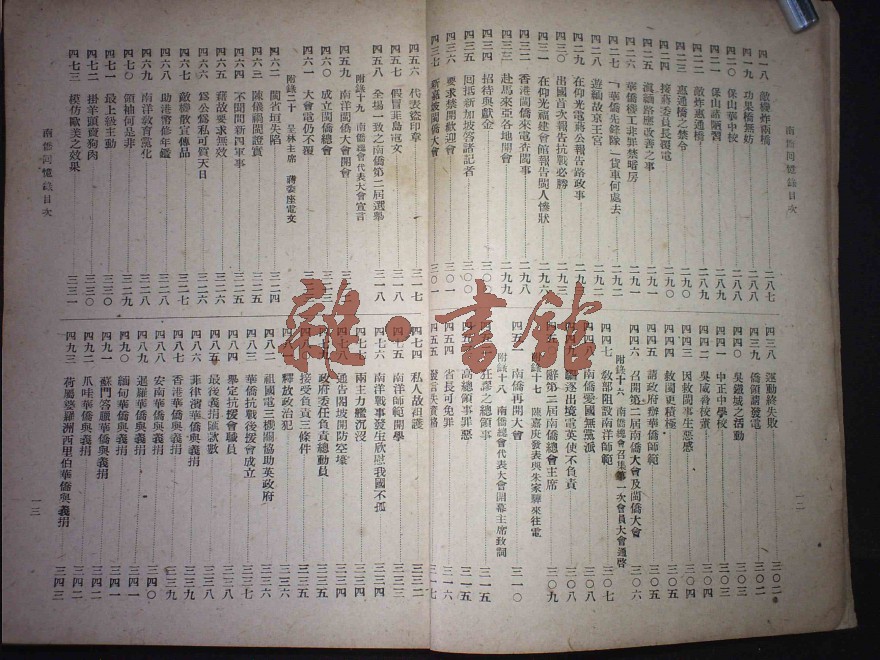 南僑回憶錄目次
四一八 敵機炸兩橋 二八七
四一九 功果橋無妨
四二〇 保山華中校 二八八
四二一 保山諸陋習 二八八
四二二 敵炸惠通橋 二八九
四二三 惠通橋之禁令 二八九
四二四 接蔣委員長覆電
四二五 滇緬路應改善之事
四二六 華僑機工非罪禁暗房
四二七 「華僑先鋒隊」一貨車何處去 二九二
四二八 遊緬故京王宮
四二九 在仰光電蔣公報告路政事
四三〇 出國首次報告抗戰必勝 二九三
四三一 在仰光福建會館報告閩人慘狀 二九六
四三二 香港閩僑來電查閩事 二九八
四三三 赴馬來亞各地開會 二九九
四三四 招待與獻金 三〇〇
四三五 回抵新加坡答諸記者
四三六 要求禁開歡迎會 三〇一
四三七 新嘉坡閩僑大會
四三八 運動終失敗 三〇二
四三九 僑領請發電 三〇二
四四〇 吳鐵城之活動 三〇三
四四一 中正中學校
四四二 吳咸脅校董 三〇四
四四三 因救閩事生惡感
四四四 救國更積極 三〇五
四四五 請政府辦華僑師範 三〇五
四四六 召開第二屆南僑大會及閩僑大會 三〇六
附錄十六 南僑總會召集第一次會員大會通啓
四四七 敎部阻設南洋師範 三〇七
四四八 南僑愛國無黨派 三〇八
四四九 驅逐出境電英使不負責 三〇八
四五〇 辭第二屆南僑總會主席 三〇九
附錄十七 陳嘉庚發表與朱家驊來往電
四五一 南僑再開大會 三一〇
附錄十八 南僑總會代表大會開幕主席致詞
狂謬之總領事 三一五
高總領事罪惡 三一五
四五四 省長可免罪 三一六
四五五 發言失資格 三一七
一二
四五六 代表盜印章 三一七
四五七 假冒菲島電文 三一八
四五八 全場一致之南僑第二屆選舉 三一八
附錄十九 南僑總會代表大會宣言
四五九 南洋閩僑大會開會
四六〇 成立閩僑總會
四六一 大會電仍不覆
附錄二十 呈林主席 蔣委座電文
四六二 閩省垣失陷 三二四
四六三 陳儀禍閩證實 三二五
四六四 不聞問新四軍事 三二五
四六五 藉故要求無效
四六六 爲公爲私可質天日 三二六
四六七 敵聯敵宣傳品 三二七
四六八 助港幣修年鑑 三二八
四六九 南洋敎育黨化 三二八
四七〇 領袖何是非 三二九
四七一 最上級主動 三三〇
四七二 掛羊頭賣狗肉 三三〇
四七三 模仿歐美之效果 三三一
四七四 私人故袒護 三三二
四七五 南洋師範開學 三三三
四七六 南洋戰事發生欣慰我國不孤
四七七 兩主力艦沉沒 三三四
四七八 通告閩坡開防空壕 三三四
四七九 政府委任負責總動員
接受負責三條件
四八一 釋放政治犯 三三六
四八二 祖國電三機關協助英政府
四八三 華僑抗戰後援會成立
四八四 舉定抗援會職員 三三八
四八五 最後義捐匯欵數 三三八
四八六 菲律濱華僑與義捐 三三九
四八七 香港華僑與義捐 三三九
四八八 安南華僑與義捐 三四〇
四八九 暹羅華僑與義捐 三四一
四九〇 緬甸華僑與義捐 三四一
四九一 蘇門答臘華僑與義捐 三四二
四九二 爪哇華僑與義捐 三四二
四九三 荷屬婆羅洲西里伯華僑與義捐 三四三
南僑回憶錄目次
一三